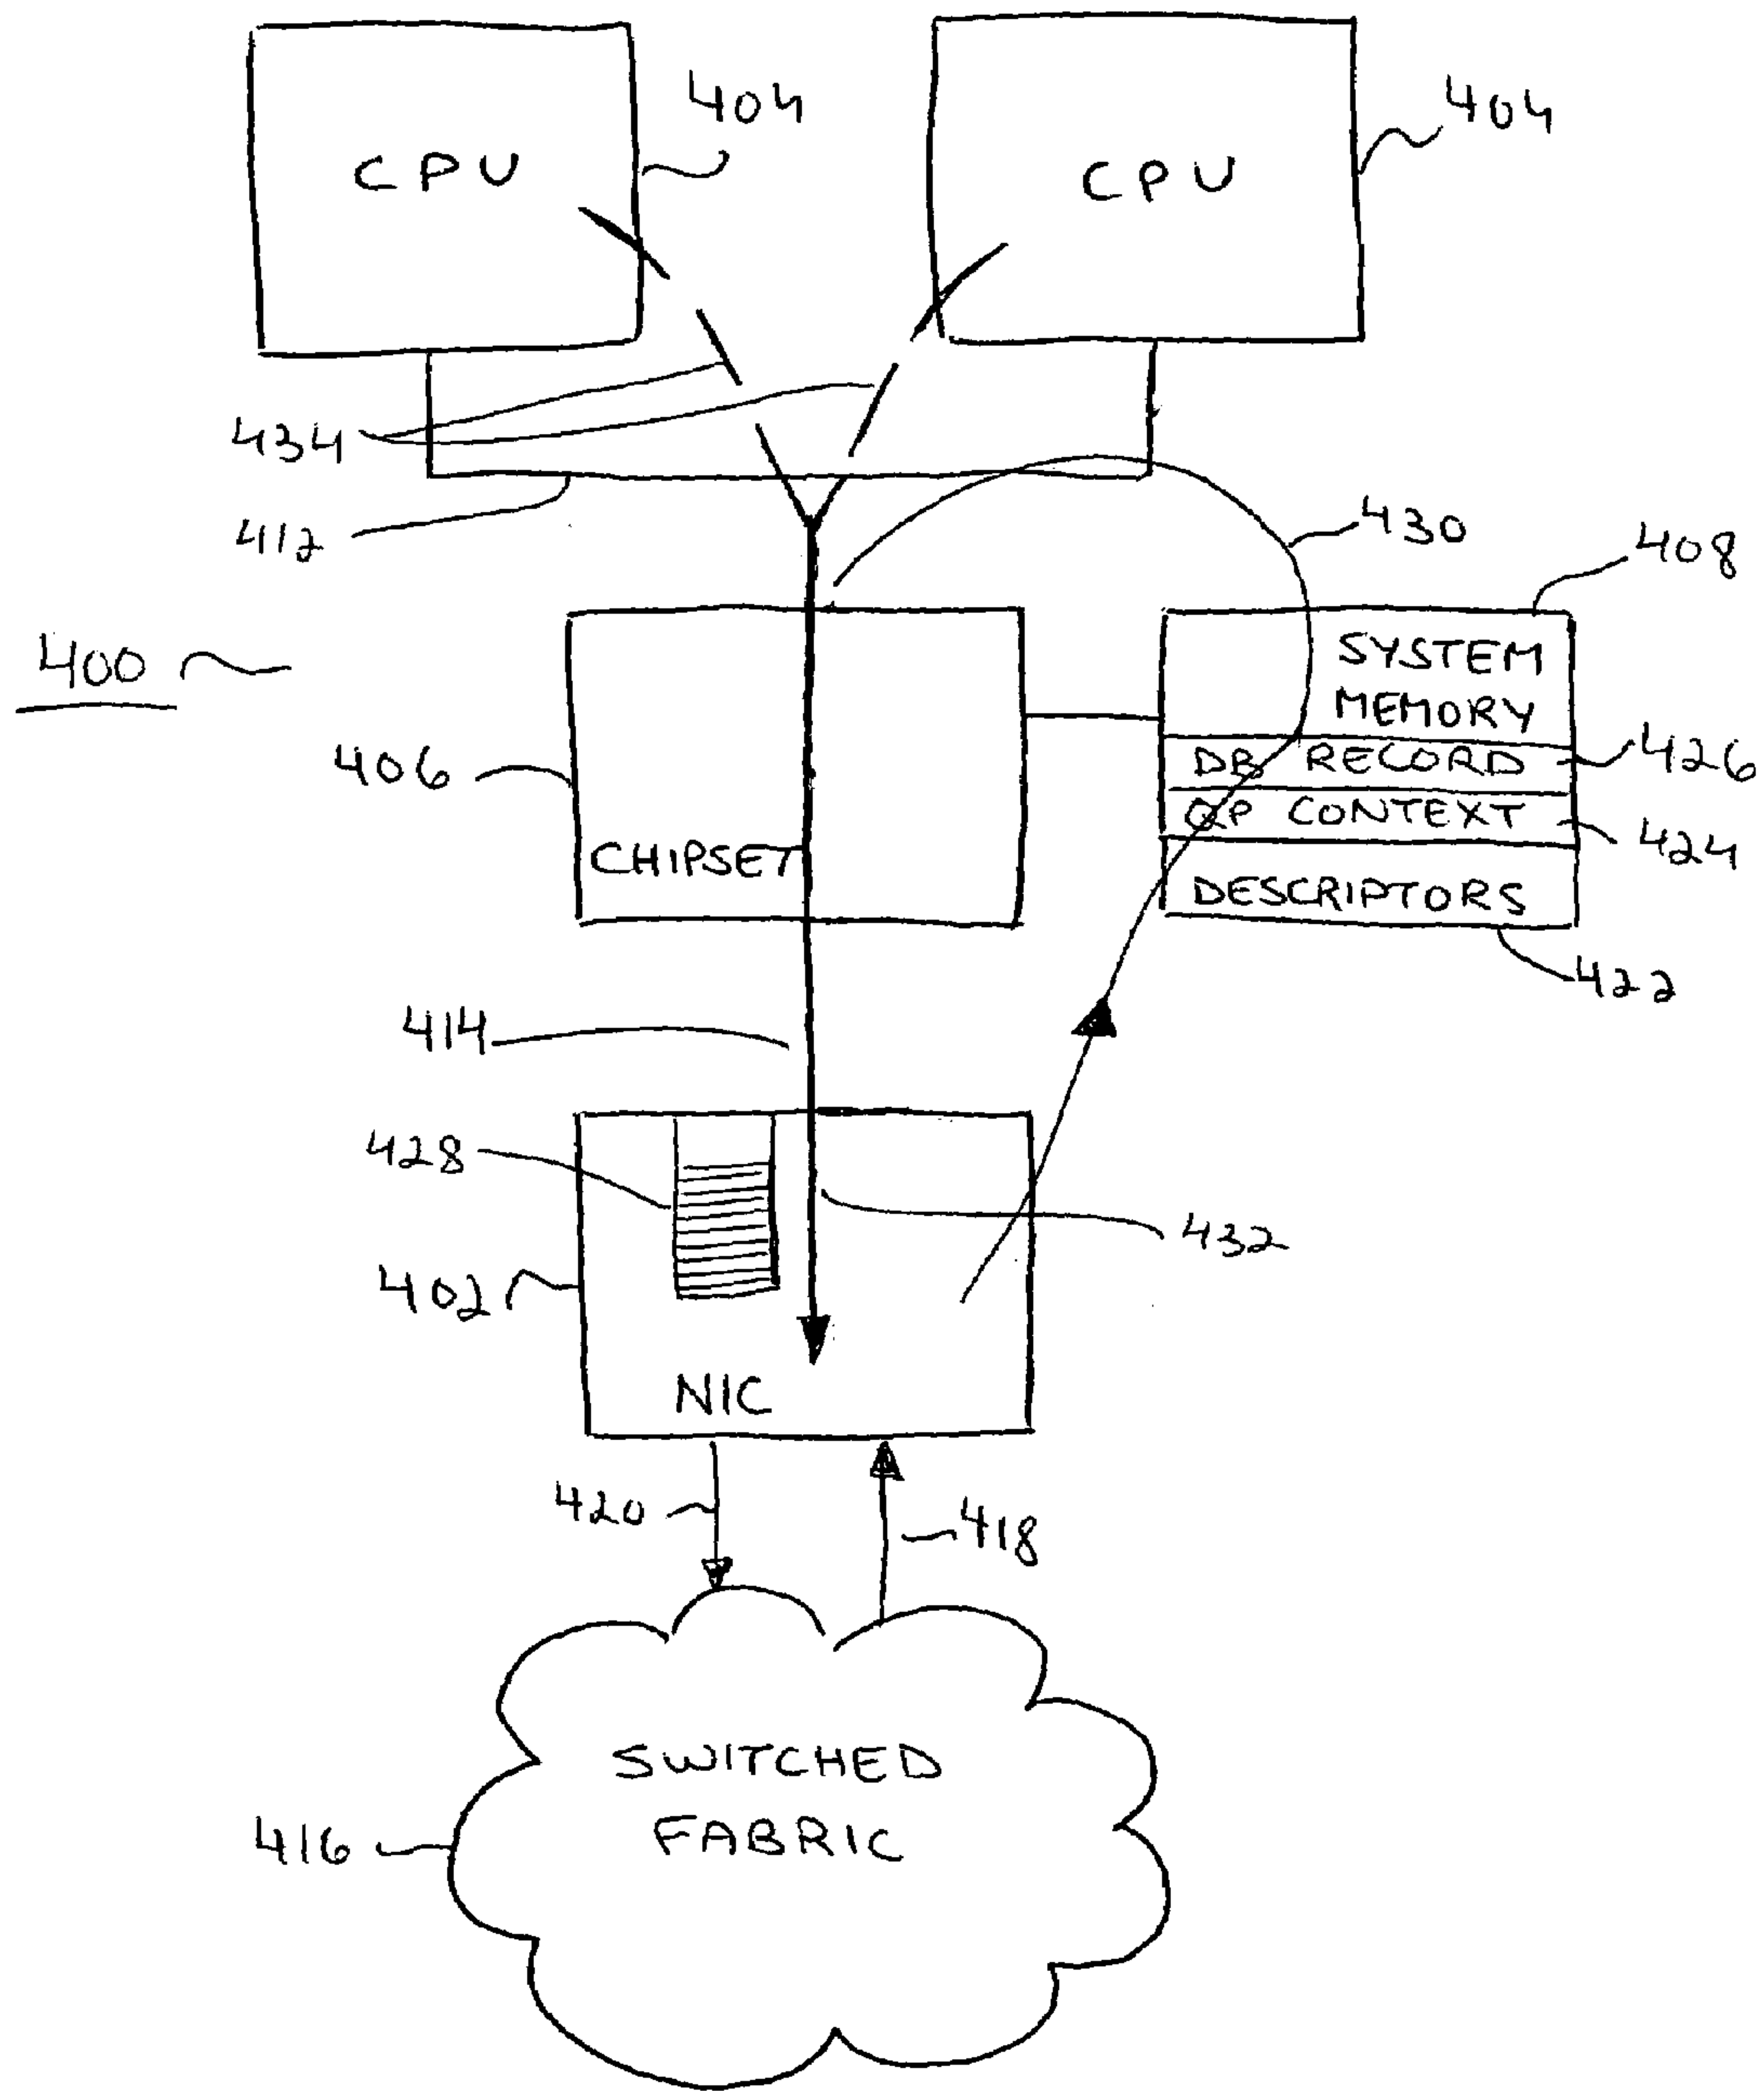 CPU
404
CPU
404
434
412
430
408
400
SYSTEM
MEMORY
406
DB RECORD
426
QP CONTEXT
424
CHIPSET
DESCRIPTORS
422
414
428
432
402
NIC
420
418
SWITCHED
FABRIC
416